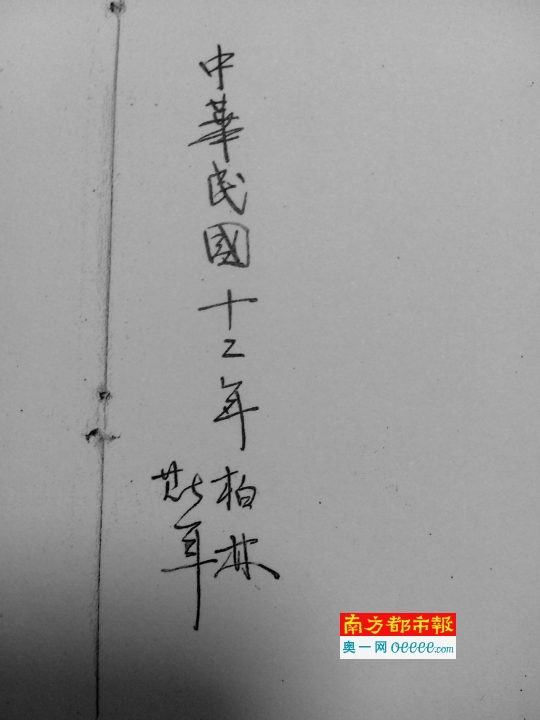 中華民國十二年柏林
斯年
南方都市報
奧一网 oeeee.com